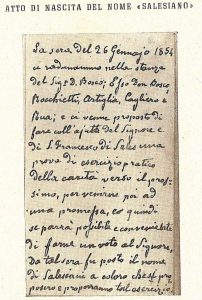 ATTO DI NASCITA DEL NOME «SALESIANO»
La sera del 26 Gennajo 1854
ci radunammo nella stanza
del Sig.r D. Bosco; Esso Don Bosco
Rocchietti, Artiglia, Cagliero e
Rua; e ci venne proposto di
fare coll'ajuto del Signore e
di S. Francesco di Sales una
prova di esercizio pratico
della carità verso il pros-
simo, per venire poi ad
una promessa, e quindi
se parrà possibile e conveniente
di farne un voto al Signore.
Da tal sera fu posto il nome
di Salesiani a coloro che si pro
posero e proporranno tal esercizio.